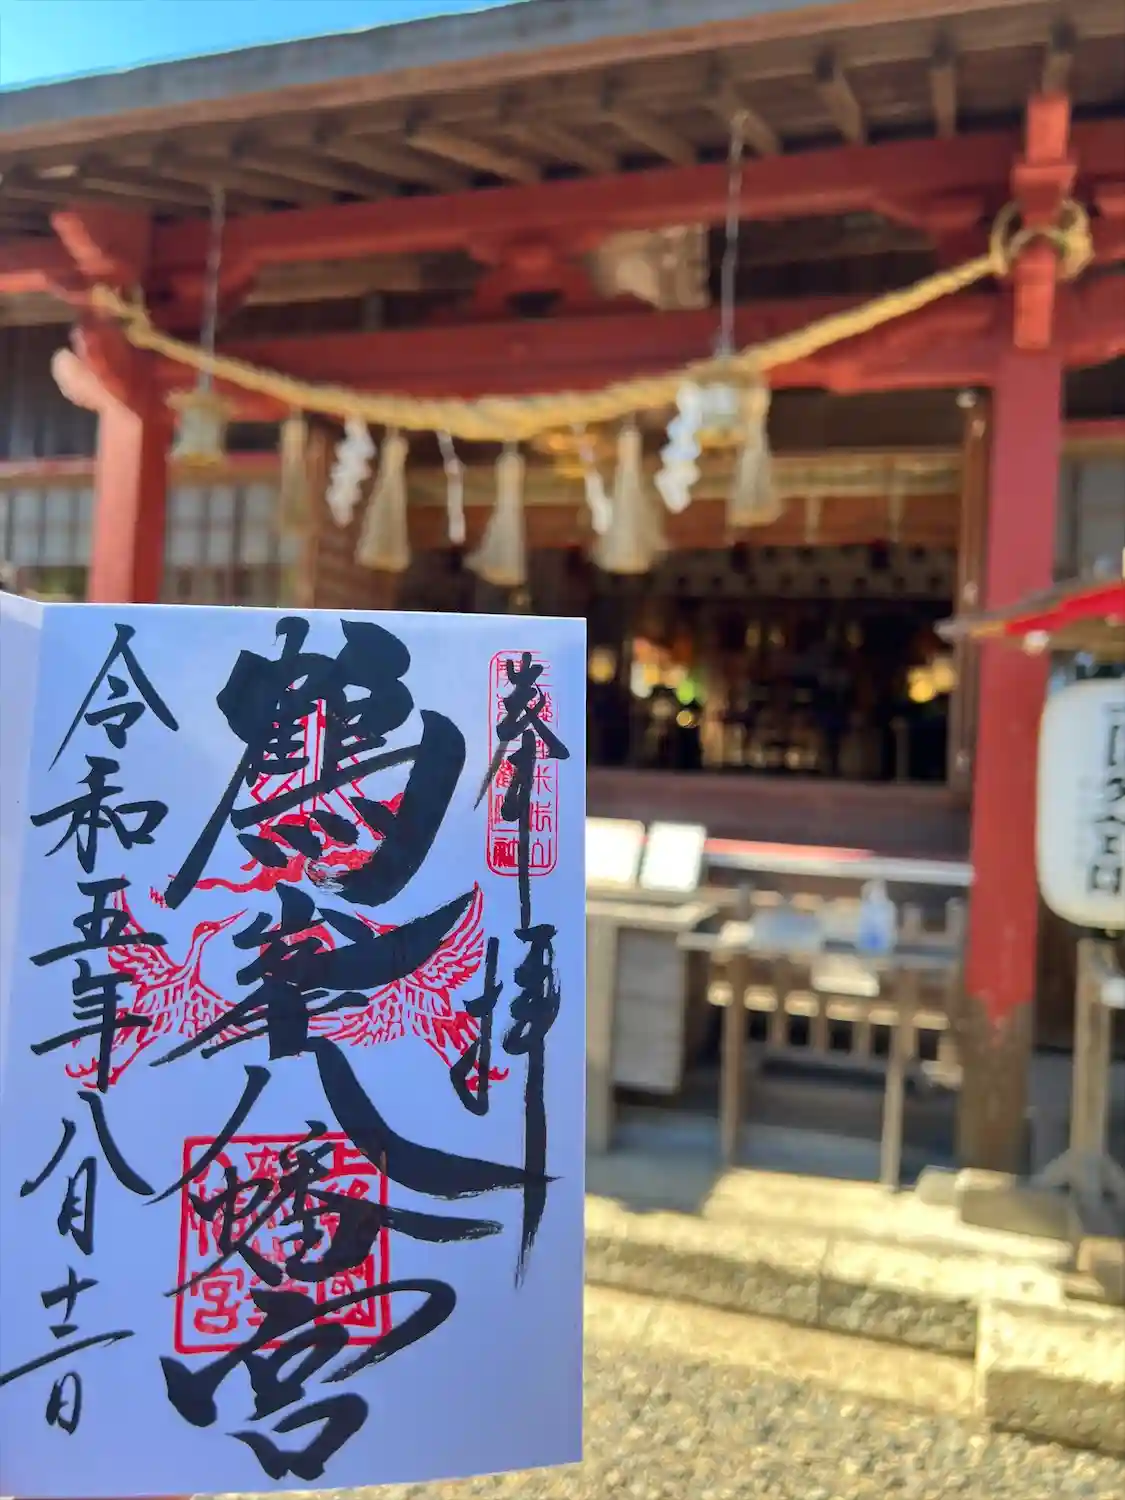 奉拝
鶴峯八幡宮
令和五年八月十三日